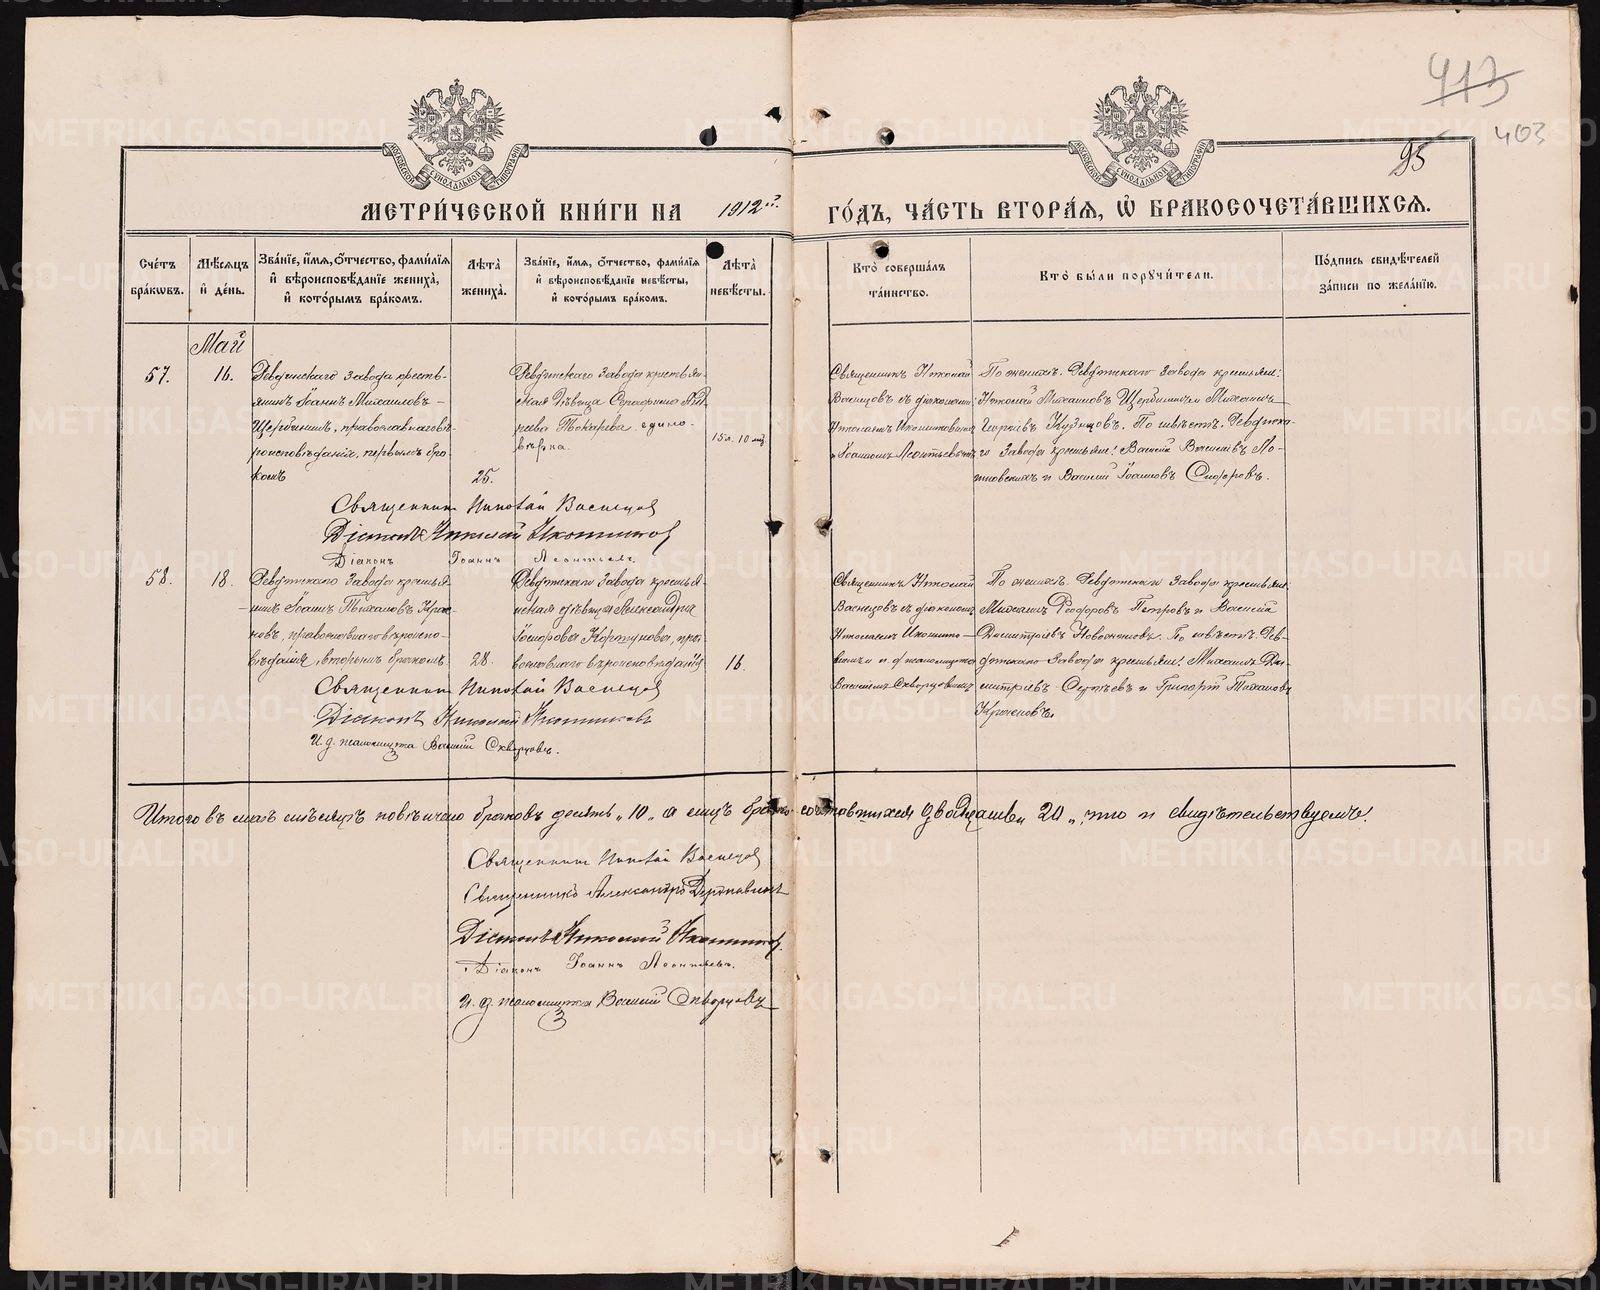 413
403
95
МОСКОВСКОЙ СУНОДАЛЬНОЙ ТИПОГРАФІИ
МОСКОВСКОЙ СУНОДАЛЬНОЙ ТИПОГРАФІИ
МЕТРИ́ЧЕСКОЙ КНИ́ГИ НА 1912 й. ГО́ДЪ, ЧА́СТЬ ВТОРА́Я, Ѡ БРАКОСОЧЕТА́ВШИХСЯ.
Сче́тъ бра́кѡвъ.
Мѣ́сяцъ и́ де́нь.
Зва́ніе, и́мя, о́тчество, фами́лія и́ вѣроисповѣ́даніе жениха̀, и́ кото́рымъ бра́комъ.
Лѣ́та̀ жениха̀.
Зва́ніе, и́мя, о́тчество, фами́лія и́ вѣроисповѣ́даніе невѣ́сты, и́ кото́рымъ бра́комъ.
Лѣ́та̀ невѣ́сты.
Кто̀ соверша́лъ та́инство.
Кто̀ бы́ли поручи́тели.
По́дпись свидѣ́телей за́писи по жела́нію.
Май
57.
16.
Ревдинскаго завода кресть-
янинъ Іоаннъ Михаиловъ
Щербининъ, православнаго вѣ-
роисповѣданія, первымъ бра-
комъ
25.
Ревдинскаго завода крестьян-
ская дѣвица Серафима
Токарева, едино-
вѣрка.
15 л. 10 мц.
Священникъ Николай
Васнецовъ съ діакономъ
Николаемъ Иконниковымъ
и Іоанномъ Леонтьевымъ
По женихѣ: Ревдинскаго завода крестьяне:
Николай Михаиловъ Щербининъ и Михаилъ
Георгіевъ Кузнецовъ. По невѣстѣ: Ревдинска-
го завода крестьяне: Василій Васильевъ По-
и Василій Іоанновъ Сидоровъ.
Священникъ Николай Васнецовъ
Діаконъ Николай Иконниковъ
Діаконъ Іоаннъ Леонтьевъ
58.
18.
Ревдинскаго завода крестья-
нинъ Іоаннъ Тихановъ
православнаго вѣроиспо-
вѣданія, вторымъ бракомъ.
28.
Ревдинскаго завода крестья-
нская дѣвица Александра
Коршунова, пра-
вославнаго вѣроисповѣданія
16.
Священникъ Николай
Васнецовъ съ діакономъ
Николаемъ Иконнико-
вымъ и и. д. псаломщика
Василіемъ Скворцовымъ
По женихѣ: Ревдинскаго завода крестьяне:
Михаилъ Ѳеодоровъ Петровъ и Василій
Димитріевъ Новоселовъ. По невѣстѣ: Рев-
динскаго завода крестьяне: Михаилъ Ди-
митріевъ и Григорій Тихановъ
Священникъ Николай Васнецовъ
Діаконъ Николай Иконниковъ
И. д. псаломщика Василій Скворцовъ.
Итого въ маѣ мѣсяцѣ повѣнчано браковъ десять „10„ а лицъ бракосочетавшихся двадцать „20„, что и свидѣтельствуемъ:
Священникъ Николай Васнецовъ
Священникъ Александръ
Діаконъ Николай Иконниковъ.
Діаконъ Іоаннъ Леонтьевъ.
И. д. псаломщика Василій Скворцовъ
METRIKI.GASO-URAL.RU